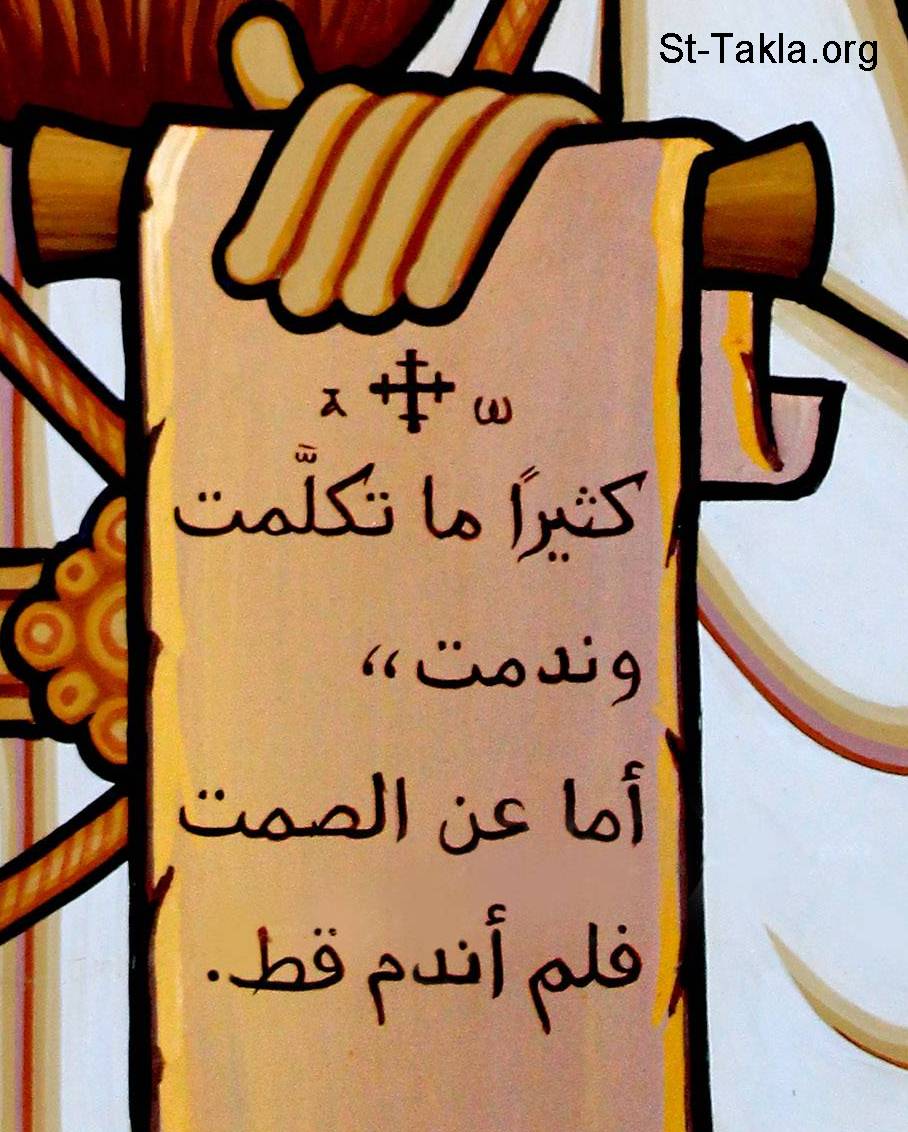 St-Takla.org
ⲁ ⲱ
كثيرًا ما تكلَّمت
وندمت،،
أما عن الصمت
فلم أندم قط.